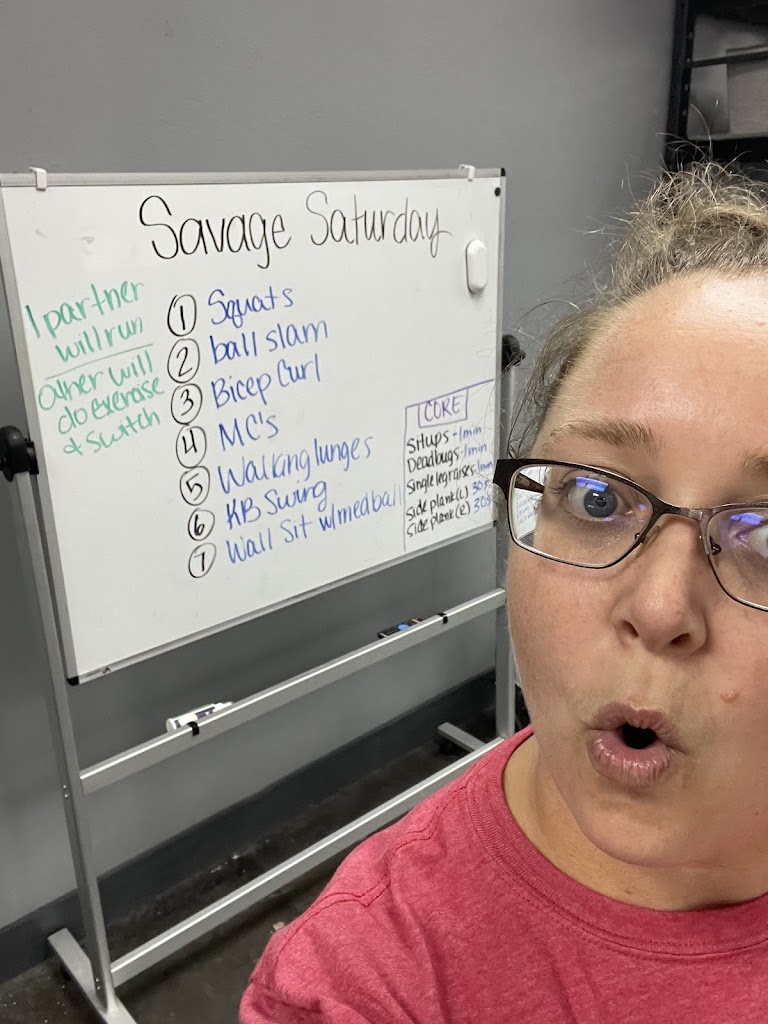 Savage Saturday
1 partner
will run
other will
do exercise
& switch
1 Squats
2 ball slam
3 Bicep Curl
4 MC's
5 Walking lunges
6 KB Swing
7 Wall Sit w/med ball
CORE
Situps - 1 min
Deadbugs - 1 min
Single leg raises 1 min
Side plank (L) 30s
Side plank (R) 30s